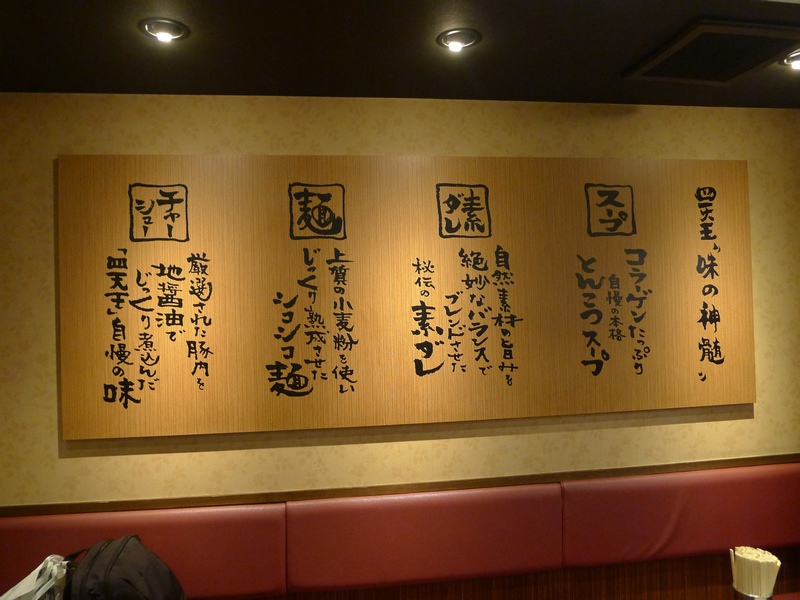 四天王"味の神髄"
スープ
コラーゲンたっぷり
自慢の本格
とんこつスープ
素ダレ
自然素材の旨みを
絶妙なバランスで
ブレンドさせた
秘伝の素ダレ
麺
上質の小麦粉を使い
じっくり熟成させた
シコシコ麺
チャーシュー
厳選された豚肉を
地醤油で
じっくり煮込んだ
「四天王」自慢の味